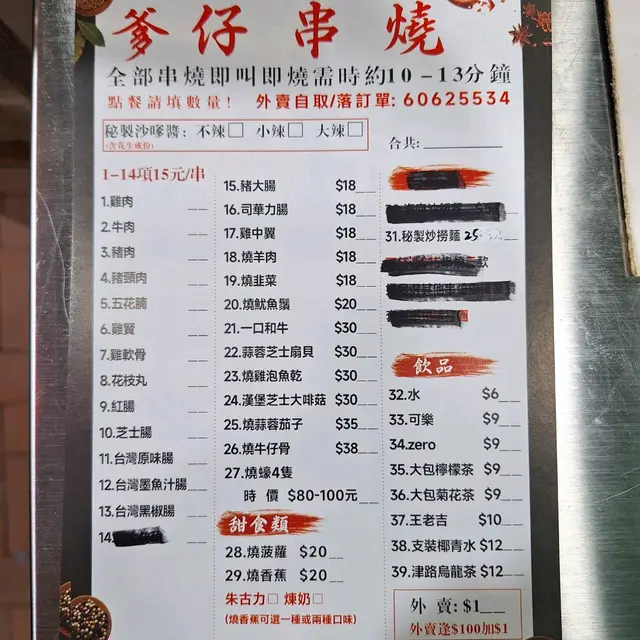 爹仔串燒
全部串燒即叫即燒需時約10-13分鐘
點餐請填數量! 外賣自取/落訂單: 60625534
秘製沙嗲醬: 不辣□ 小辣□ 大辣□
(含花生成份)
合共:
1-14項15元/串
1.雞肉
2.牛肉
3.豬肉
4.豬頸肉
5.五花腩
6.雞腎
7.雞軟骨
8.花枝丸
9.紅腸
10.芝士腸
11.台灣原味腸
12.台灣墨魚汁腸
13.台灣黑椒腸
14.
15.豬大腸 $18
16.司華力腸 $18
17.雞中翼 $18
18.燒羊肉 $18
19.燒韭菜 $18
20.燒魷魚鬚 $20
21.一口和牛 $30
22.蒜蓉芝士扇貝 $30
23.燒雞泡魚乾 $30
24.漢堡芝士大啡菇 $30
25.燒蒜蓉茄子 $35
26.燒牛仔骨 $38
27.燒蠔4隻
時價 $80-100元
甜食類
28.燒菠蘿 $20
29.燒香蕉 $20
朱古力□ 煉奶□
(燒香蕉可選一種或兩種口味)
31.秘製炒撈麵 25
飲品
32.水 $6
33.可樂 $9
34.zero $9
35.大包檸檬茶 $9
36.大包菊花茶 $9
37.王老吉 $10
38.支裝椰青水 $12
39.津路烏龍茶 $12
外賣: $1
外賣逢$100加$1